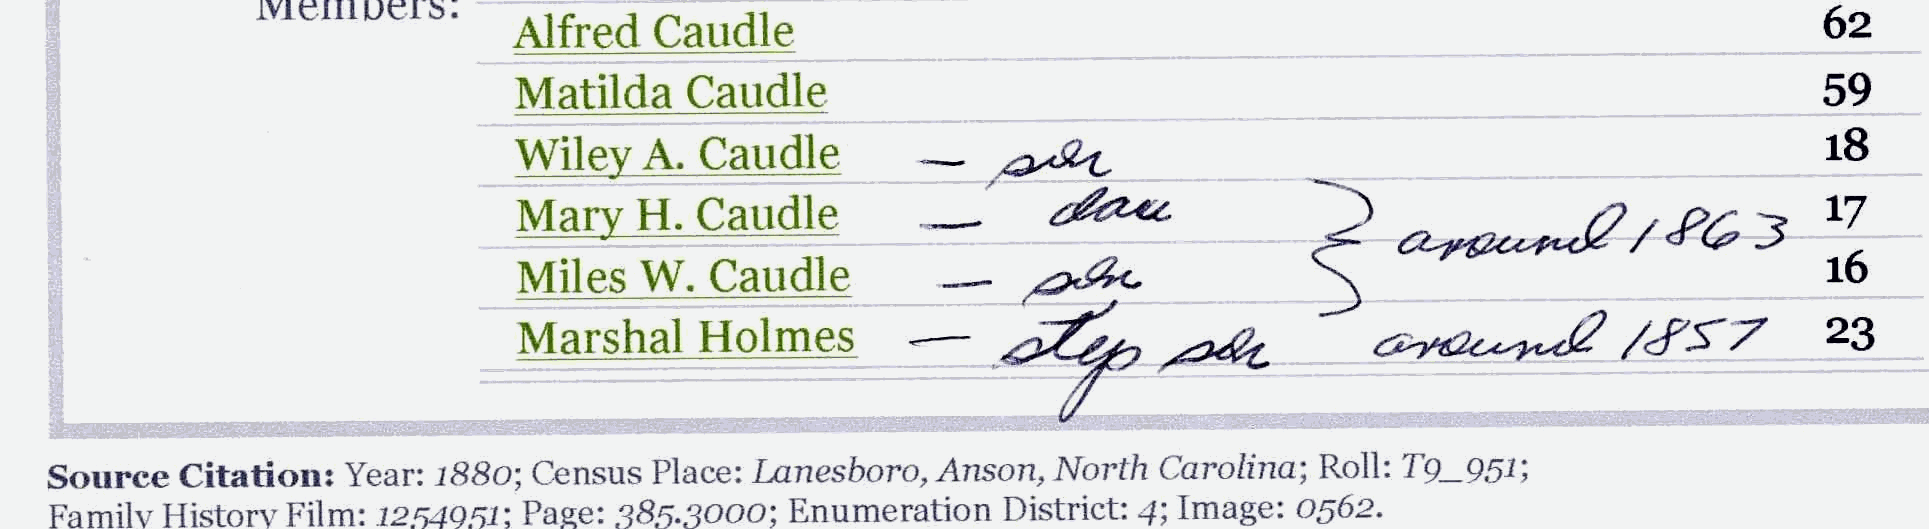 Members:
Alfred Caudle 62
Matilda Caudle 59
Wiley A. Caudle — son 18
Mary H. Caudle — dau 17
} around 1863
Miles W. Caudle — son 16
Marshal Holmes — step son around 1857 23
Source Citation: Year: 1880; Census Place: Lanesboro, Anson, North Carolina; Roll: T9_951;
Family History Film: 1254951; Page: 385.3000; Enumeration District: 4; Image: 0562.